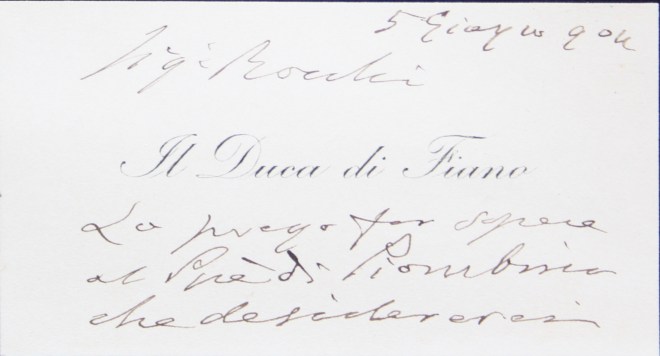 5 Giugno 904
Sig.r Rocchi
Il Duca di Fiano
La prego far sapere
al Ppe di Piombino
che desidererei